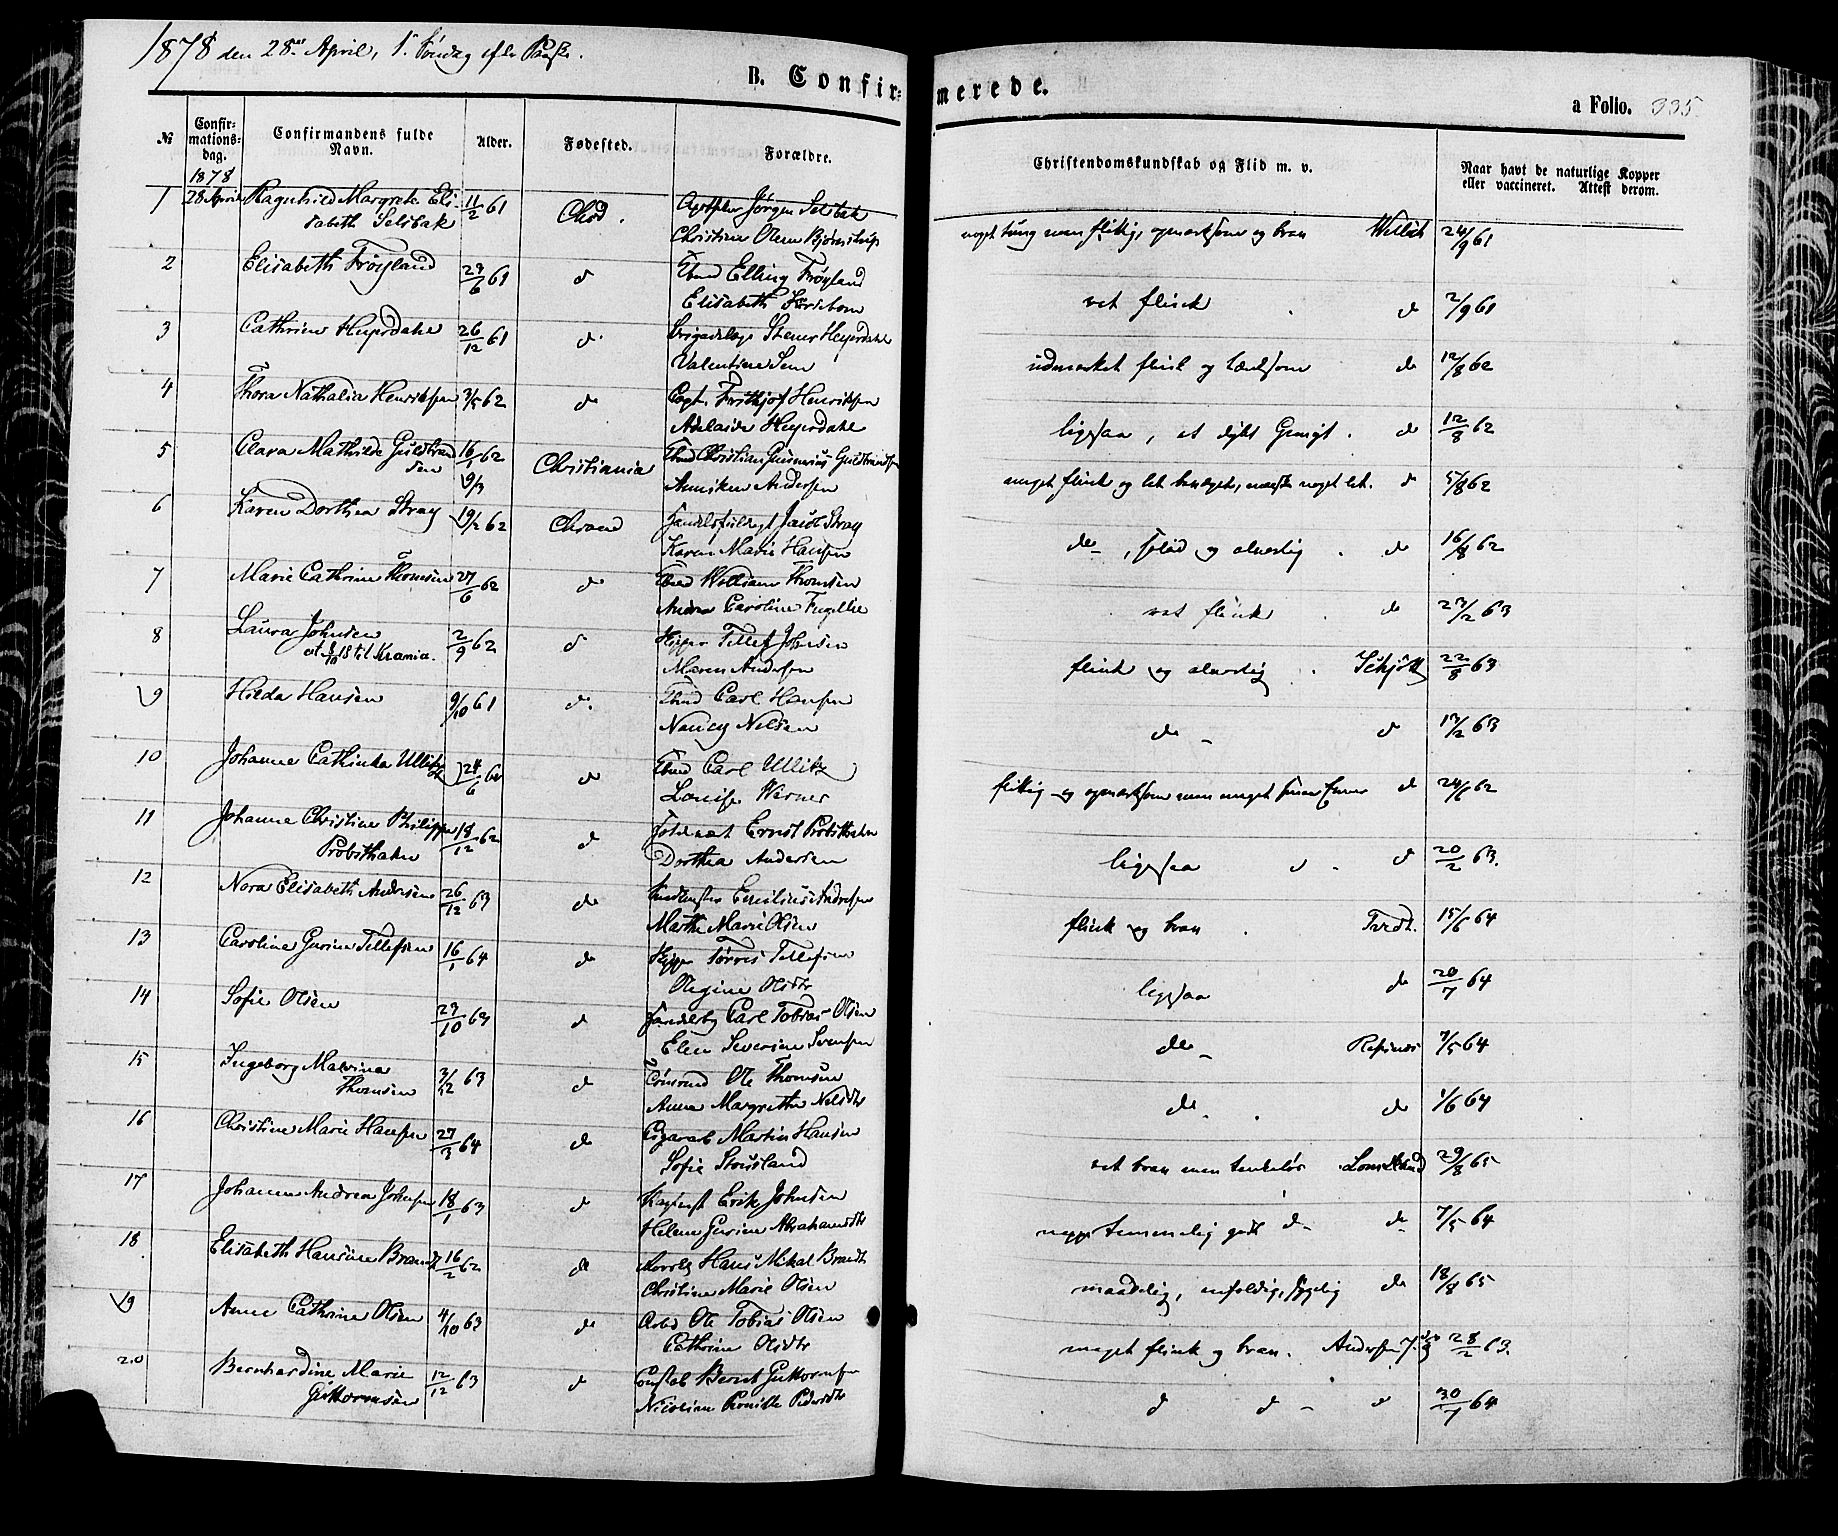 1878 den 28de April, 1ste Søndag efter Paaske.
B. Confirmerede.
a Folio. 335.
№
Confirmationsdag.
Confirmandens fulde Navn.
Alder.
Fødested.
Forældre.
Christendomskundskab og Flid m. v.
Naar havt de naturlige Kopper eller vaccineret. Attest derom.
1878
1 28 April Ragnhild Margrete Eli- 11/2 61 Chrsd. Jørgen Selsbak
sabeth Selsbak Christine Olene Bjørnstrup
noget tung men flittig, opmærksom og brav 24/9 61
2 Elisabeth Frøyland 29/6 61 d Elling Frøyland
Elisabeth
ret flink . do 2/9 61
3 Cathrine Heyerdahl 26/12 61 d. Heyerdahl
Valentine Sem
udmærket flink og lærdsom do 12/8 62
4 Thora Nathalia Henriksen 3/5 62 do Capt. Frithjof Henriksen
Adelaide Heyerdahl
ligesaa, et dybt Gemyt. do 12/8 62
5 Clara Mathilde Guldbran 16/1 62 Christiania Christian Gunnerius Guldbrandsen
den Annikken Andersen
meget flink og let do 5/8 62
9/3
6 Karen Dorthea Stray 19/2 62 Chrsand Jacob Stray
Karen Marie Hansen
do, solid og alvorlig . do 16/8 62
7 Marie Cathrine Thomsen 27/6 62 do William Thomsen
Andrea Caroline
ret flink do 23/2 63
8 Laura Johnsen 2/9 62 d Skipper Tellef Johnsen
til Krania. Maren Andersen
flink og alvorlig . Schjött 22/8 63
9 Hilda Hansen 9/10 61 d. Carl Hansen
Nancy Nelsen
do - d 13/2 63
10 Johanne Cathinka Ullitz 24/6 do Carl Ullitz
Louise Werner
flittig og opmærksom men meget do 24/6 62
11 Johanne Christine Philippa 18/12 62 d Ernst Probsthahn
Probsthahn Dorthea Andersen
ligesaa d 20/2 63.
12 Nora Elisabeth Andersen 26/12 63 do Emilius Andersen
Marthe Marie Olsen
flink og brav . Tvedt. 15/6 64
13 Caroline Gurine Tellefsen 16/1 64 do Skipper Tørres Tellefsen
Olegine Olsdtr
ligesaa do 20/7 64
14 Sofie Olsen 29/10 63 d Carl Tobias Olsen
Elen Severine Svensen
do - 7/5 64
15 Ingeborg Malvina 3/12 63 d Tømrmd Ole Thomsen
Thomsen Anne Margrethe Nelsdtr
do - . do 1/6 64
16 Christine Marie Hansen 27/3 64 do Cigararb Martin Hansen
Sofie Stousland
ret brav men tankeløs 29/8 65
17 Johanne Andrea Johnsen 18/1 63 d Erik Johnsen
Helene Gurine Abrahamsdtr
neppe temmelig godt d- do 7/5 64
18 Elisabeth Hansine Brandt 16/2 62 do Hans Mikal Brandt
Christine Marie Olsen
maadelig, enfoldig, sygelig do 18/8 65
19 Anne Cathrine Olsen 4/10 63 do Arbd Ole Tobias Olsen
Cathrine Olsdtr
meget flink og brav. Andersen 28/2 63.
20 Bernhardine Marie 12/12 63 d Constab Bernt Guttormsen
Guttormsen Nicoline Pernille Pedersdtr
d d - d 30/7 64